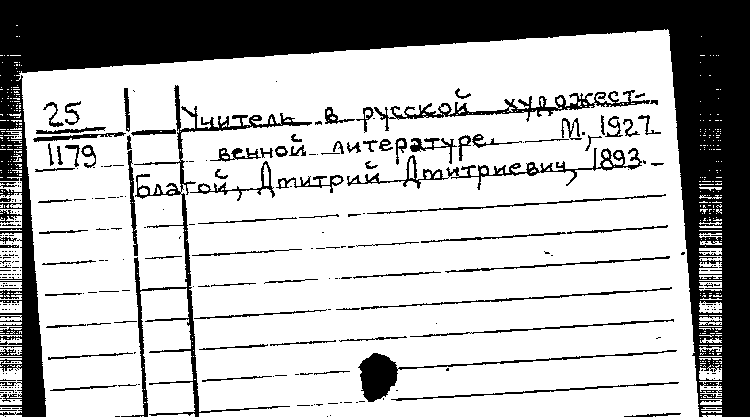 25 Учитель в русской художест-
1179 венной литературе. М., 1927.
Благой, Дмитрий Дмитриевич, 1893-